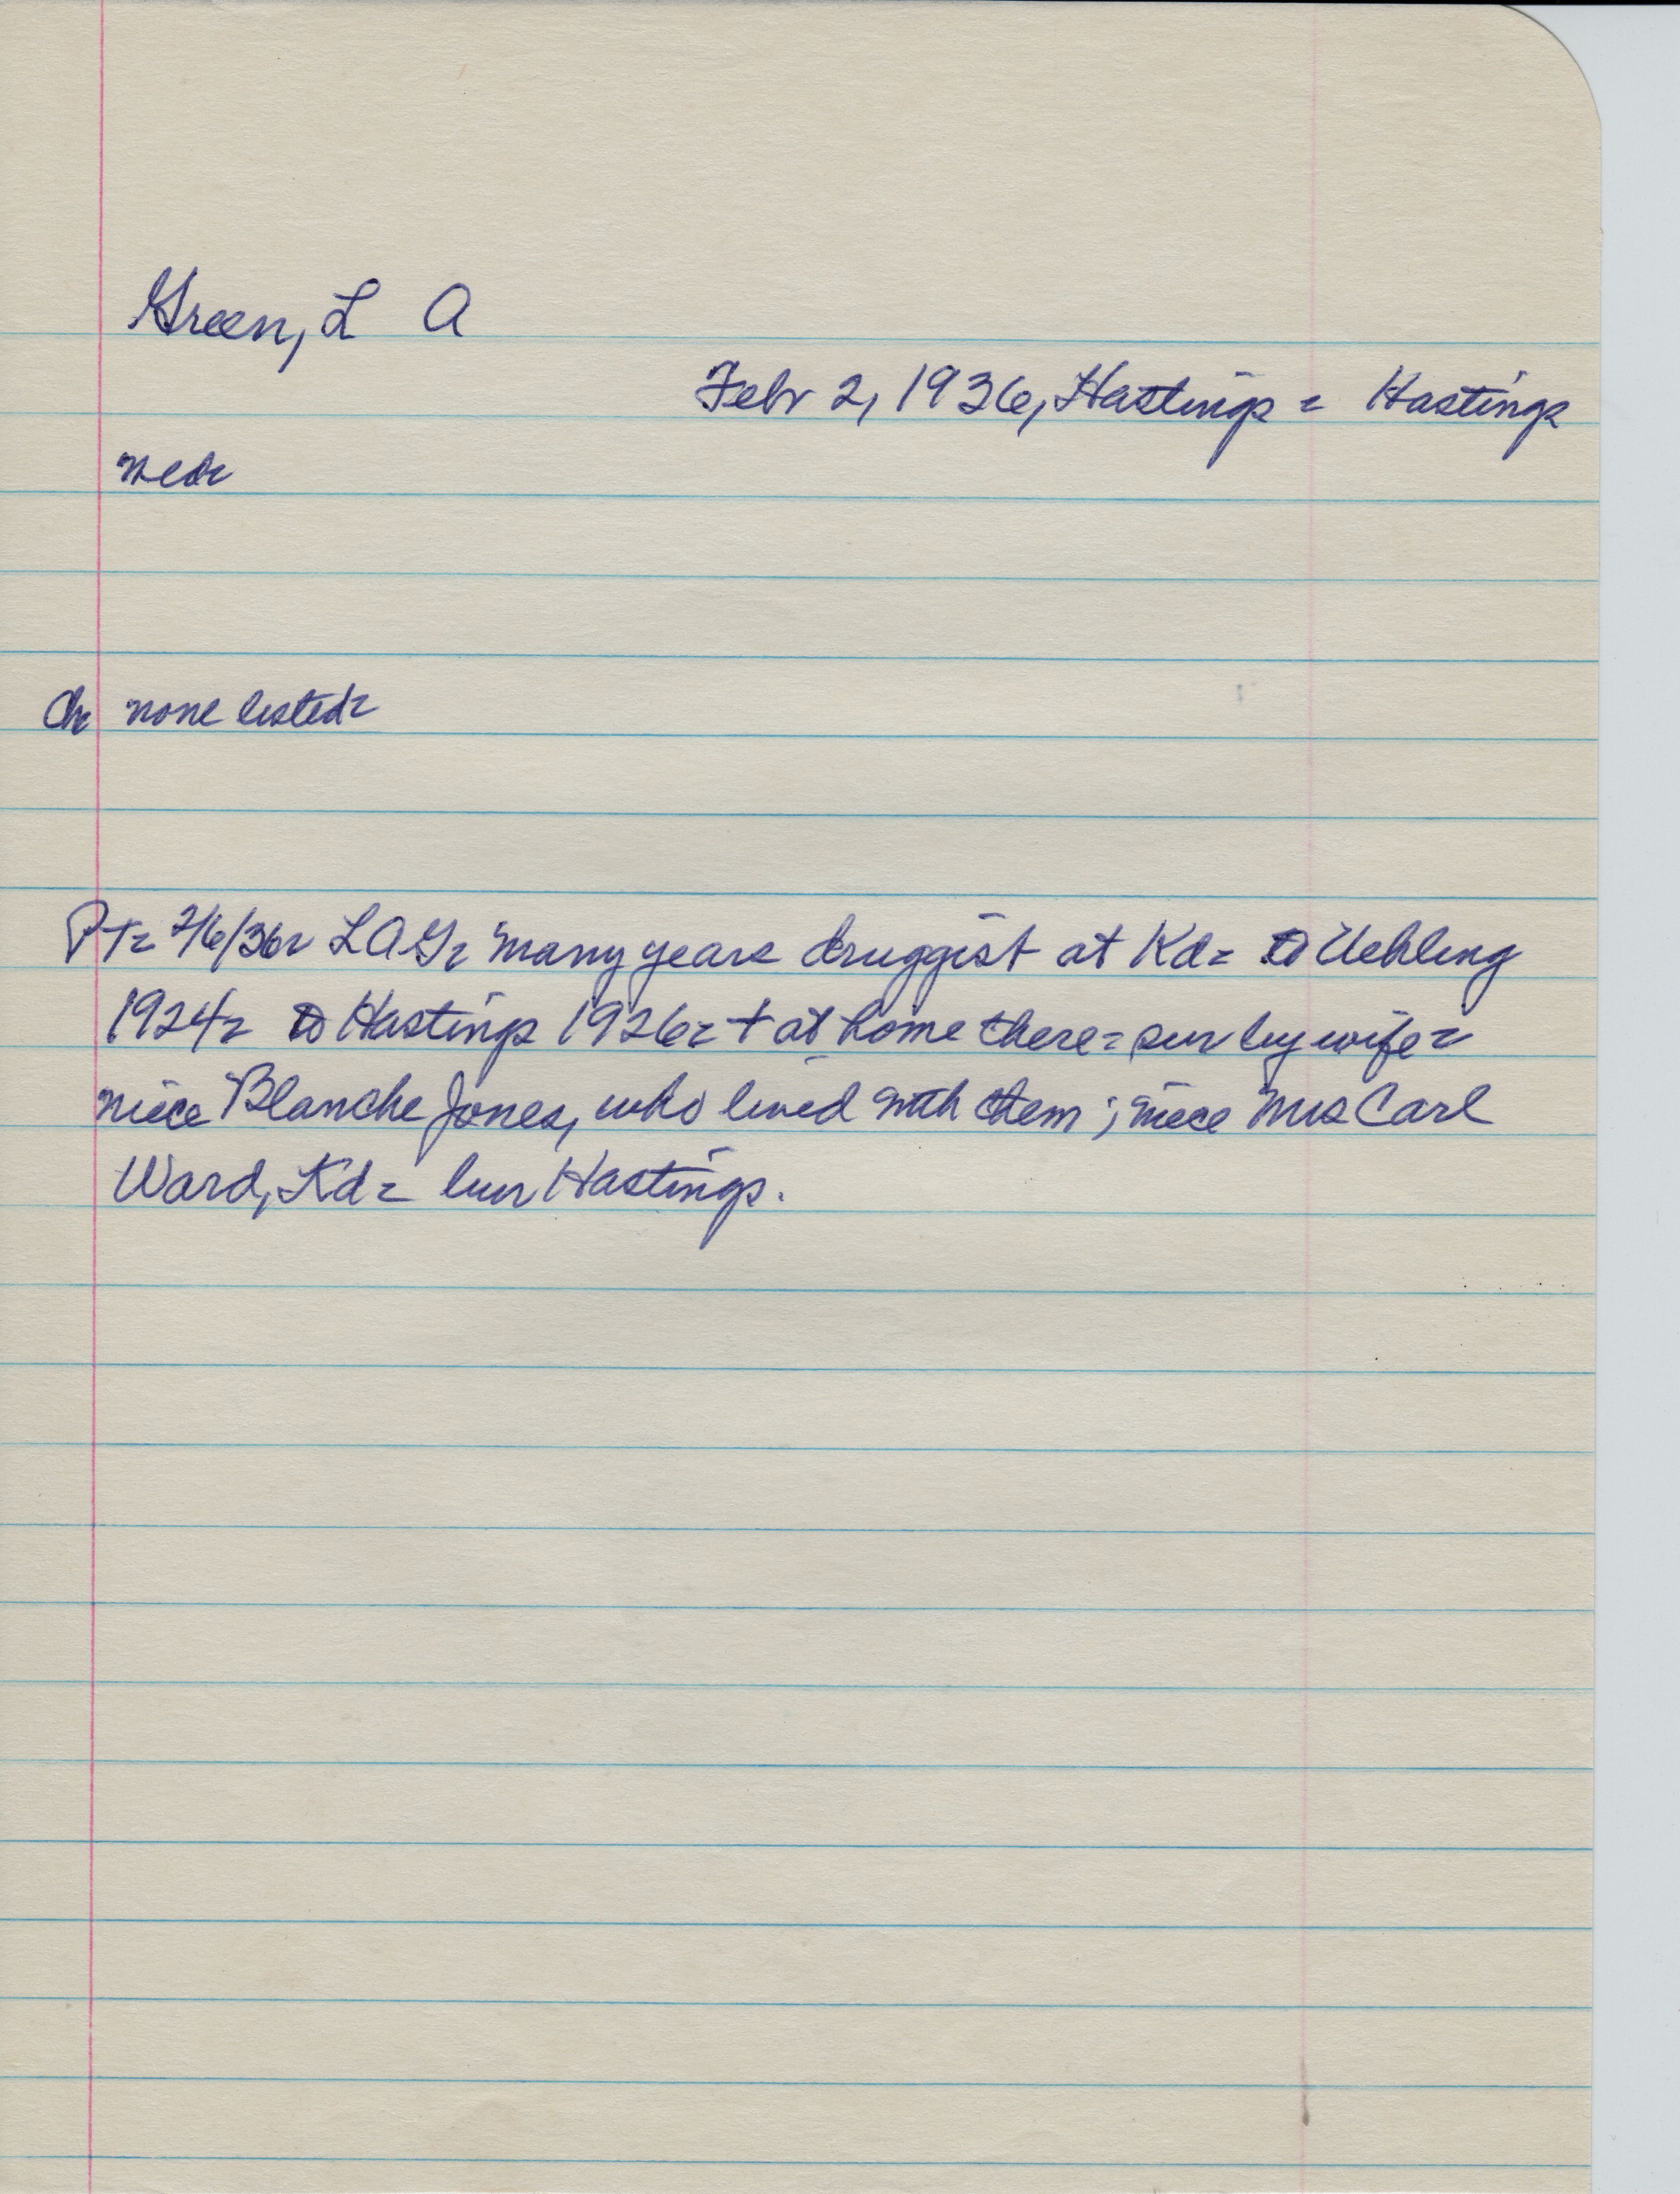 Green, L A
Febr 2, 1936, Hastings = Hastings
wed=
Ch none listed=
PT= 2/6/36= LAG= many years druggist at Kd= to Uehling
1924= to Hastings 1926= + at home there= sur by wife=
niece Blanche Jones, who lived with them; niece Mrs Carl
Ward, Kd= bur Hastings.